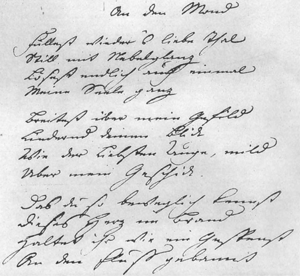 An den Mond
Füllest wieder 's liebe Thal
Still mit Nebelglanz
Lösest endlich auch einmal
Meine Seele ganz
Breitest über mein Gefild
Lindernd deinen Blick
Wie der Liebsten Auge, mild
Über mein Geschick.
Das du so beweglich kennst
Dieses Herz im Brand
Haltet ihr wie ein Gespenst
An den Fluß gebannt